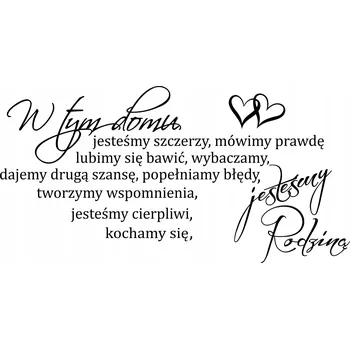 W tym domu
jesteśmy szczerzy, mówimy prawdę
lubimy się bawić, wybaczamy,
dajemy drugą szansę, popełniamy błędy,
tworzymy wspomnienia,
jesteśmy cierpliwi,
kochamy się,
jesteśmy
Rodziną